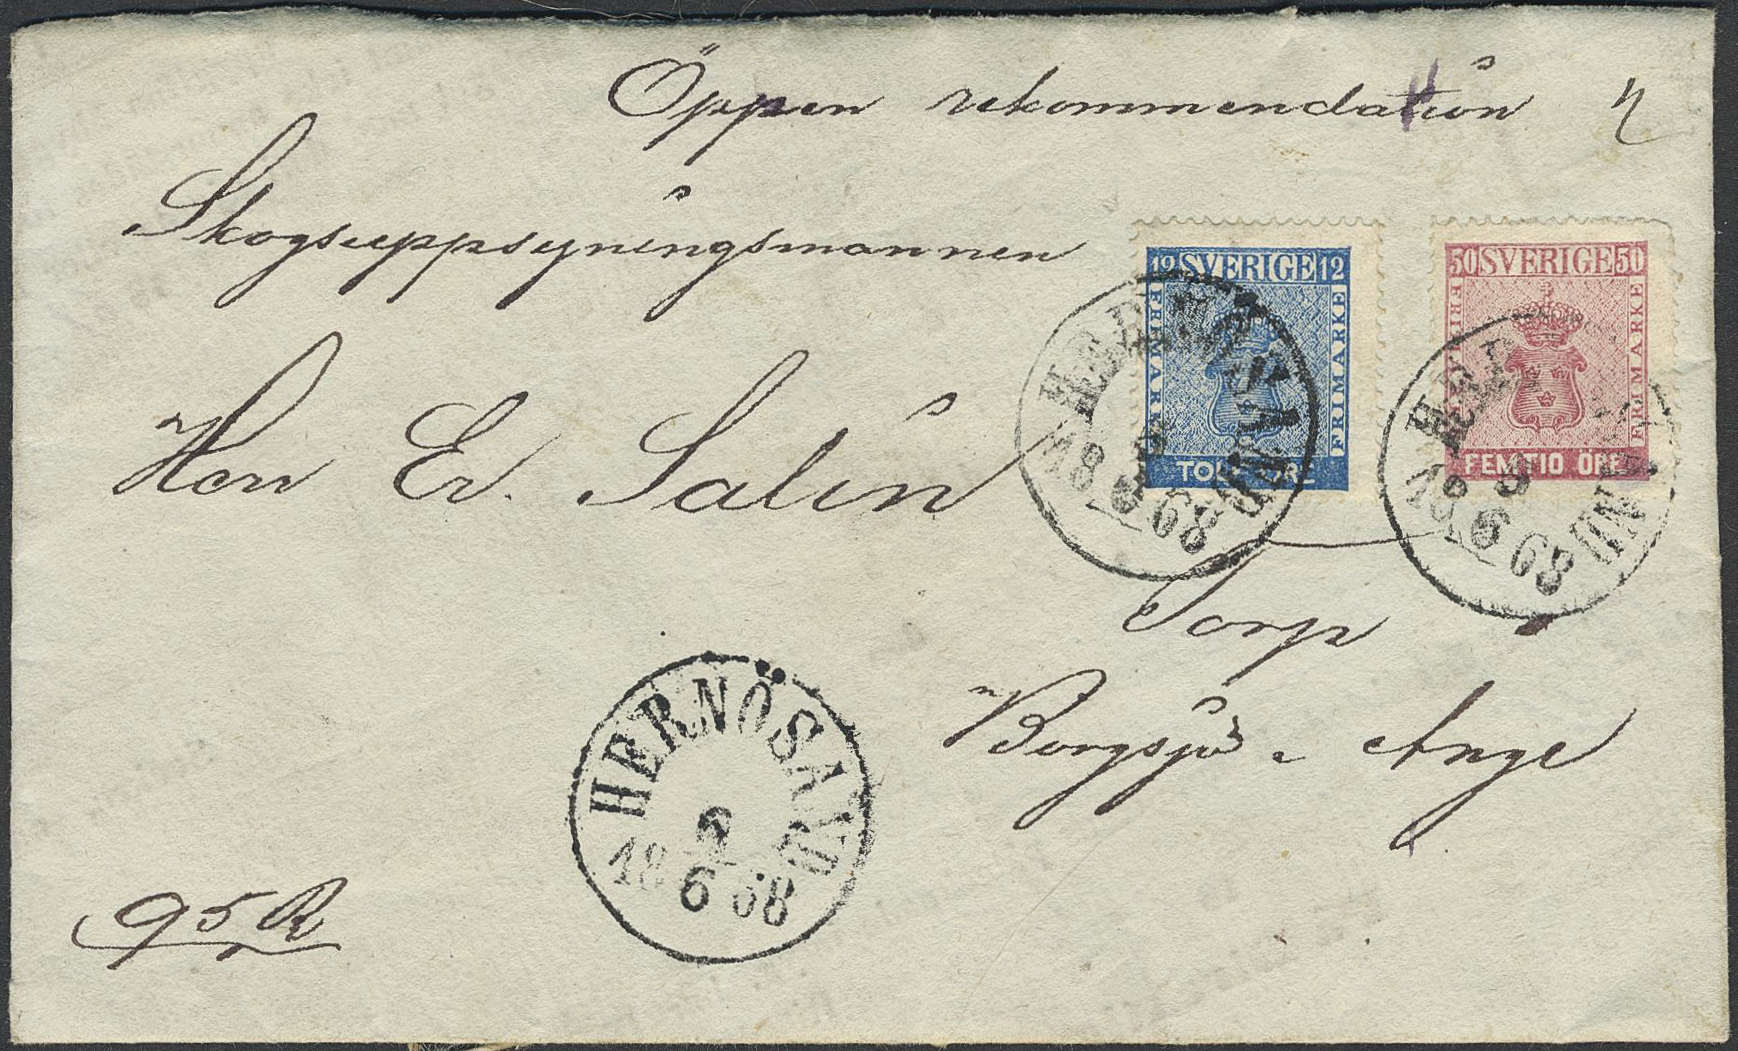 Öppen rekommendation
Skogsuppsyningsmannen
Herr Er. Salin
Torp
Borgsjö Ånge
95 R
12 SVERIGE 12
FRIMARKE
FRIMARKE
TOLF ÖRE
50 SVERIGE 50
FRIMARKE
FRIMARKE
FEMTIO ÖRE
HERNÖSAND
9
18 6 68
HERNÖSAND
9
18 6 68
HERNÖSAND
9
18 6 68